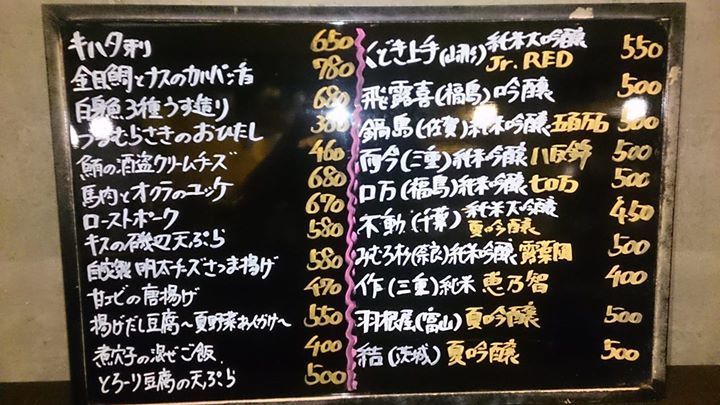 キハタ刺り 650
金目鯛とナスのカルパッチョ 780
白身魚3種うす造り 680
つるむらさきのおひたし 380
鮪の酒盗クリームチーズ 460
馬肉とオクラのユッケ 680
ローストポーク 670
キスの磯辺天ぷら 580
自家製 明太チーズさつま揚げ 580
甘エビの唐揚げ 470
揚げだし豆腐〜夏野菜あんかけ〜 550
煮穴子の混ぜご飯 400
とろーり豆腐の天ぷら 500
くどき上手(山形)純米大吟醸 Jr. RED 550
飛露喜(福島)吟醸 500
鍋島(佐賀)純米吟醸 五百万石 500
而今(三重)純米吟醸 八反錦 500
ロ万(福島)純米吟醸 七ロ万 500
不動(千葉)純米大吟醸 夏吟醸 450
みむろ杉(奈良)純米吟醸 露葉風 500
作(三重)純米 恵乃智 400
羽根屋(富山)夏吟醸 500
結(茨城)夏吟醸 500